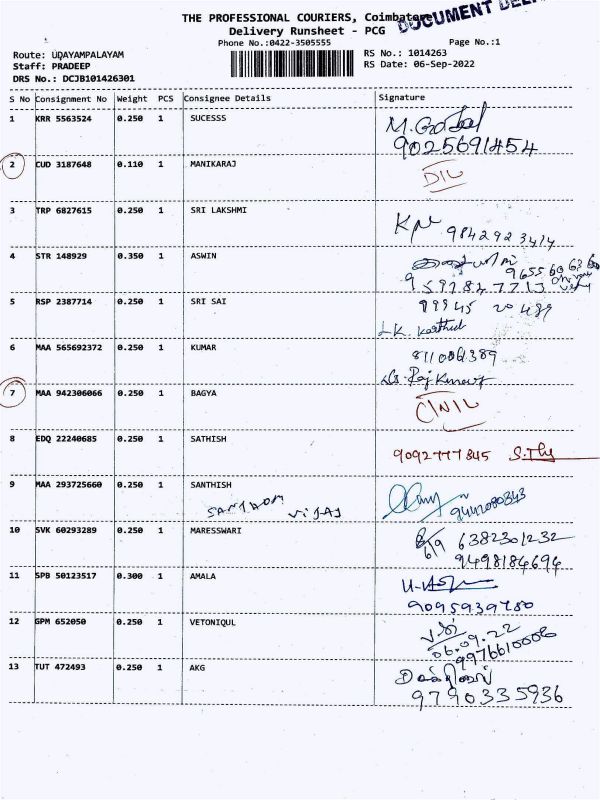 THE PROFESSIONAL COURIERS, Coimbatore
DOCUMENT
Delivery Runsheet - PCG
Phone No.:0422-3505555
Page No.:1
Route: UDAYAMPALAYAM
RS No.: 1014263
Staff: PRADEEP
RS Date: 06-Sep-2022
DRS No.: DCJB101426301
S No Consignment No Weight PCS Consignee Details Signature
1 KRR 5563524 0.250 1 SUCESSS
9025691454
2 CUD 3187648 0.110 1 MANIKARAJ DIL
3 TRP 6827615 0.250 1 SRI LAKSHMI
9842923414
4 STR 148929 0.350 1 ASWIN
5 RSP 2387714 0.250 1 SRI SAI
L.K.
6 MAA 565692372 0.250 1 KUMAR
Raj Kumar
7 MAA 942306066 0.250 1 BAGYA
8 EDQ 22240685 0.250 1 SATHISH 9092777845
9 MAA 293725660 0.250 1 SANTHISH
10 SVK 60293289 0.250 1 MARESSWARI 6/9 6382301232
9498184694
11 SPB 50123517 0.300 1 AMALA
9095939780
12 GPM 652050 0.250 1 VETONIQUL
06.09.22
9976610006
13 TUT 472493 0.250 1 AKG
9790335936